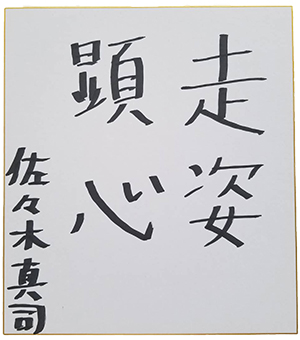 走姿
顕心
佐々木真司